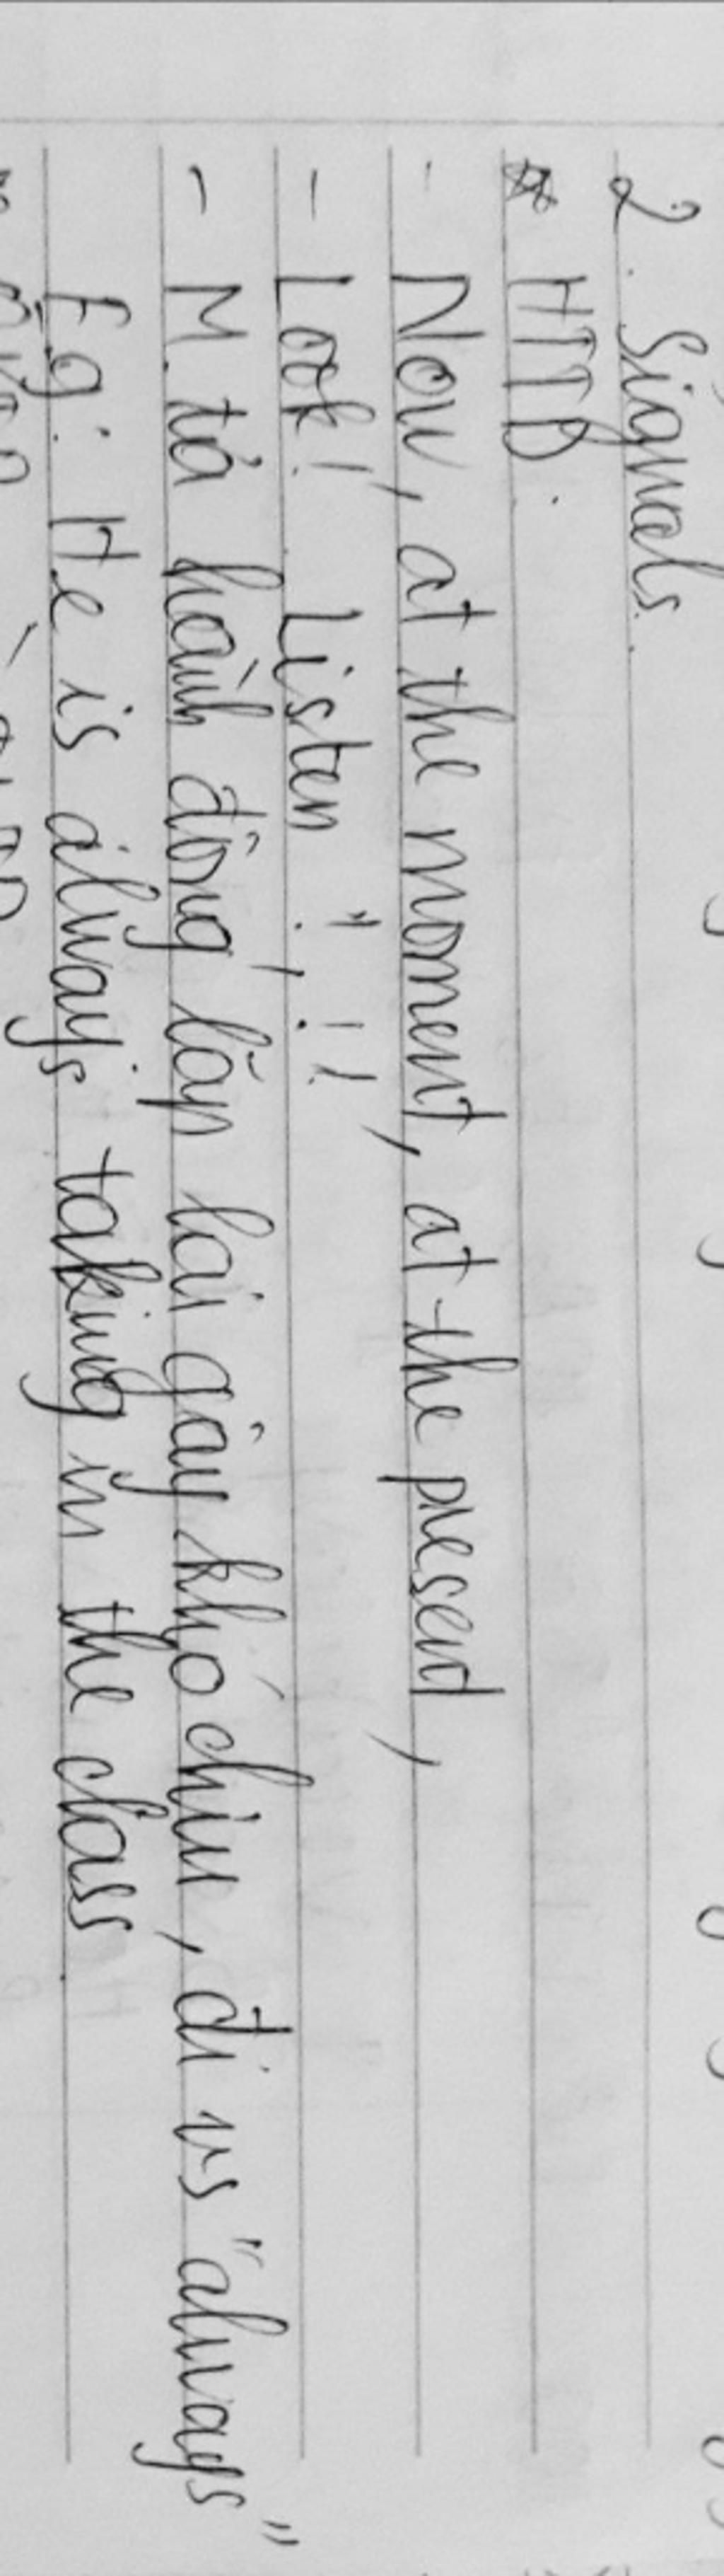 2. Signals.
* HTTD.
- Now, at the moment, at the present,
- Look!, Listen !", !!
- M. tả hành động lặp lại gây khó chịu, đi vs "always"
Eg: He is always taking in the class.